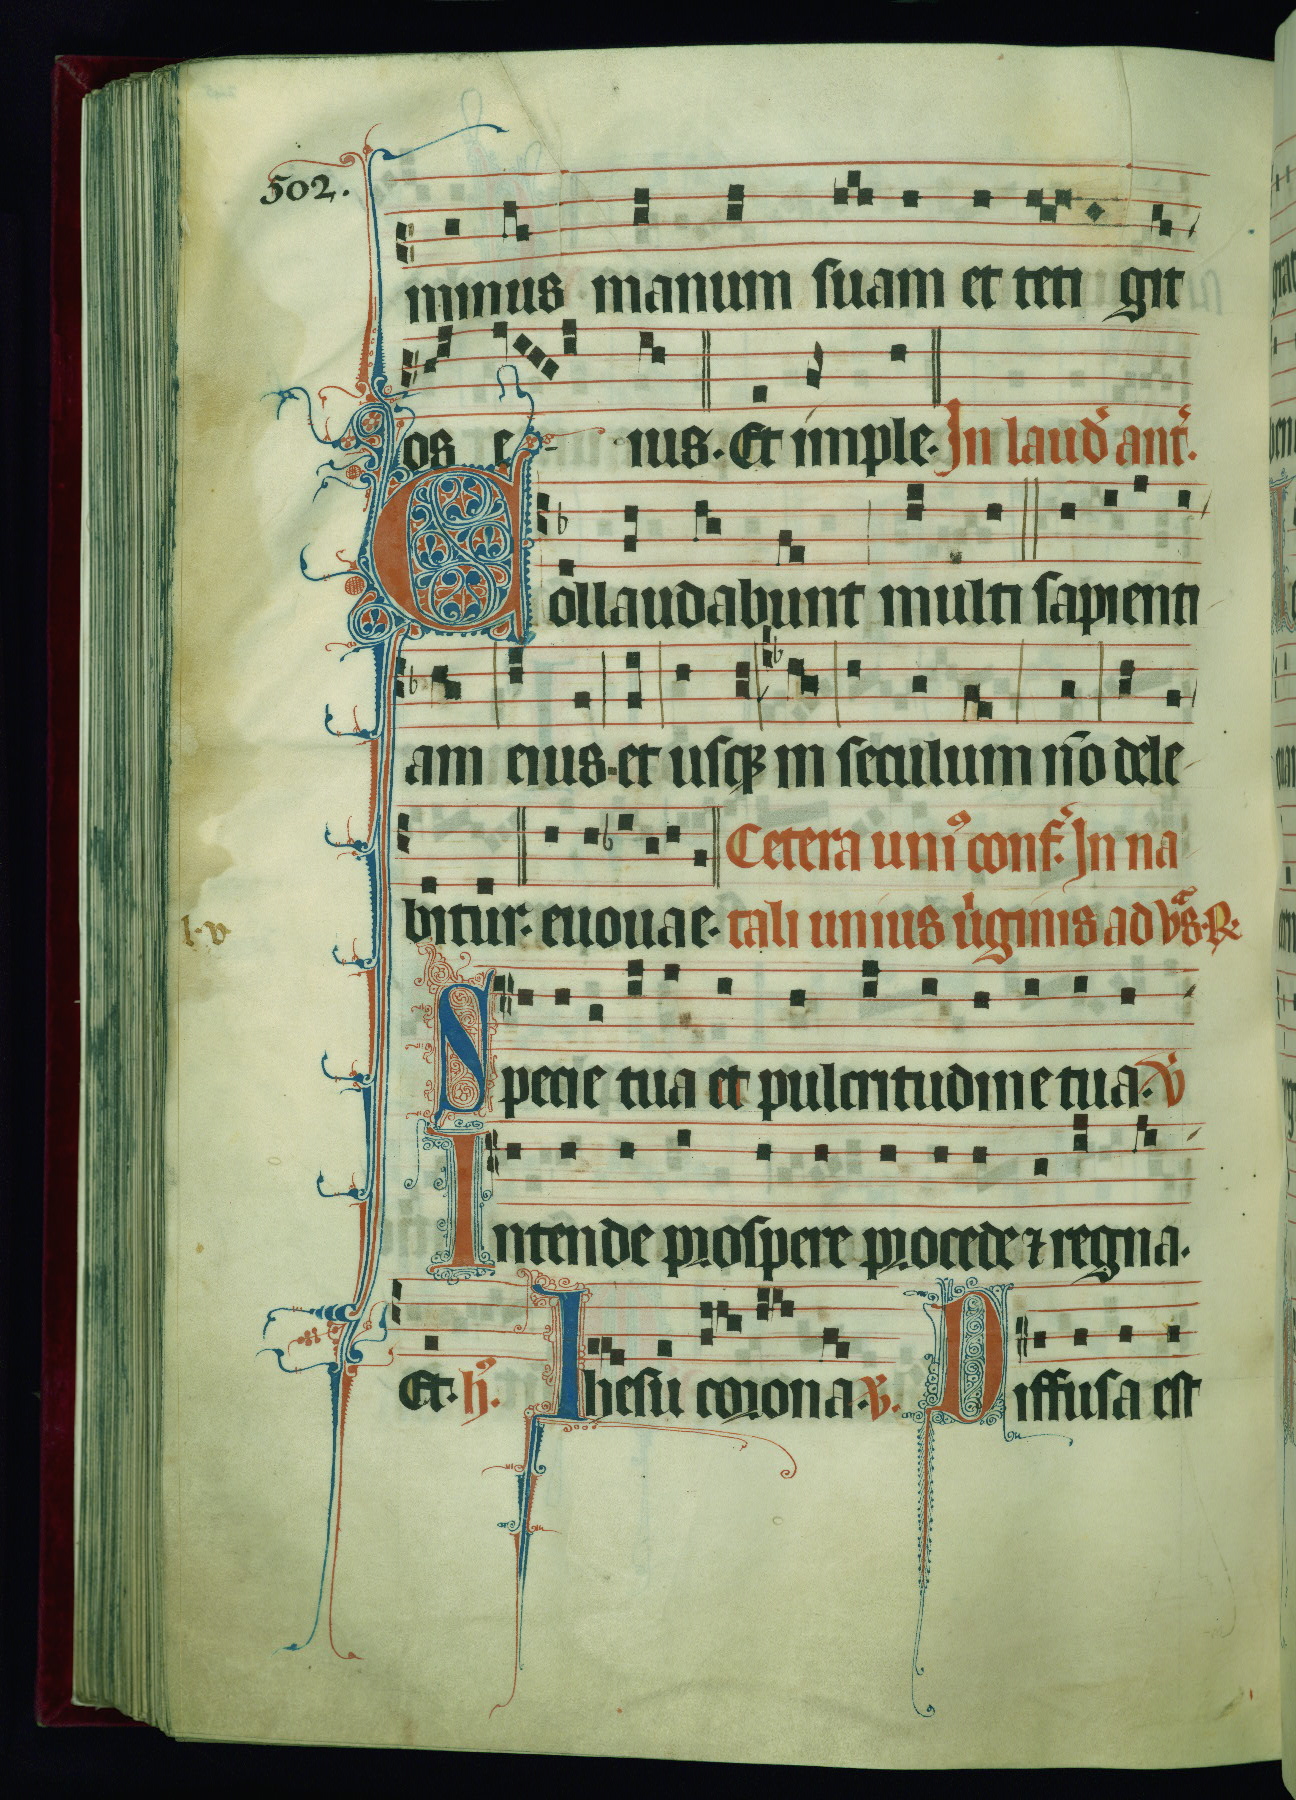 502.
minus manum suam et teti git
os e - ius. Et imple. In laud̄ ant̄.
Collaudabunt multi sapienti
am eius. et usq̨ in seculum nō dele
Cetera uni⁹ conf̄. In na
bitur. euouae. tali unius u̇ginis ad v̄s. R.
l.v
Specie tua et pulcritudine tua. v̄
Intende prospere procede ⁊ regna.
Et. h̄. Ihesu corona. v̄. Diffusa est